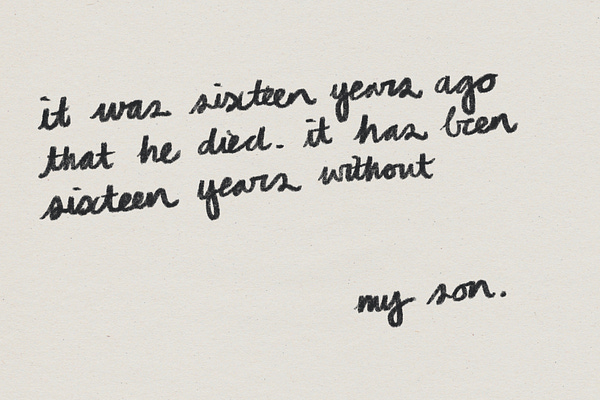 it was sixteen years ago
that he died. it has been
sixteen years without
my son.